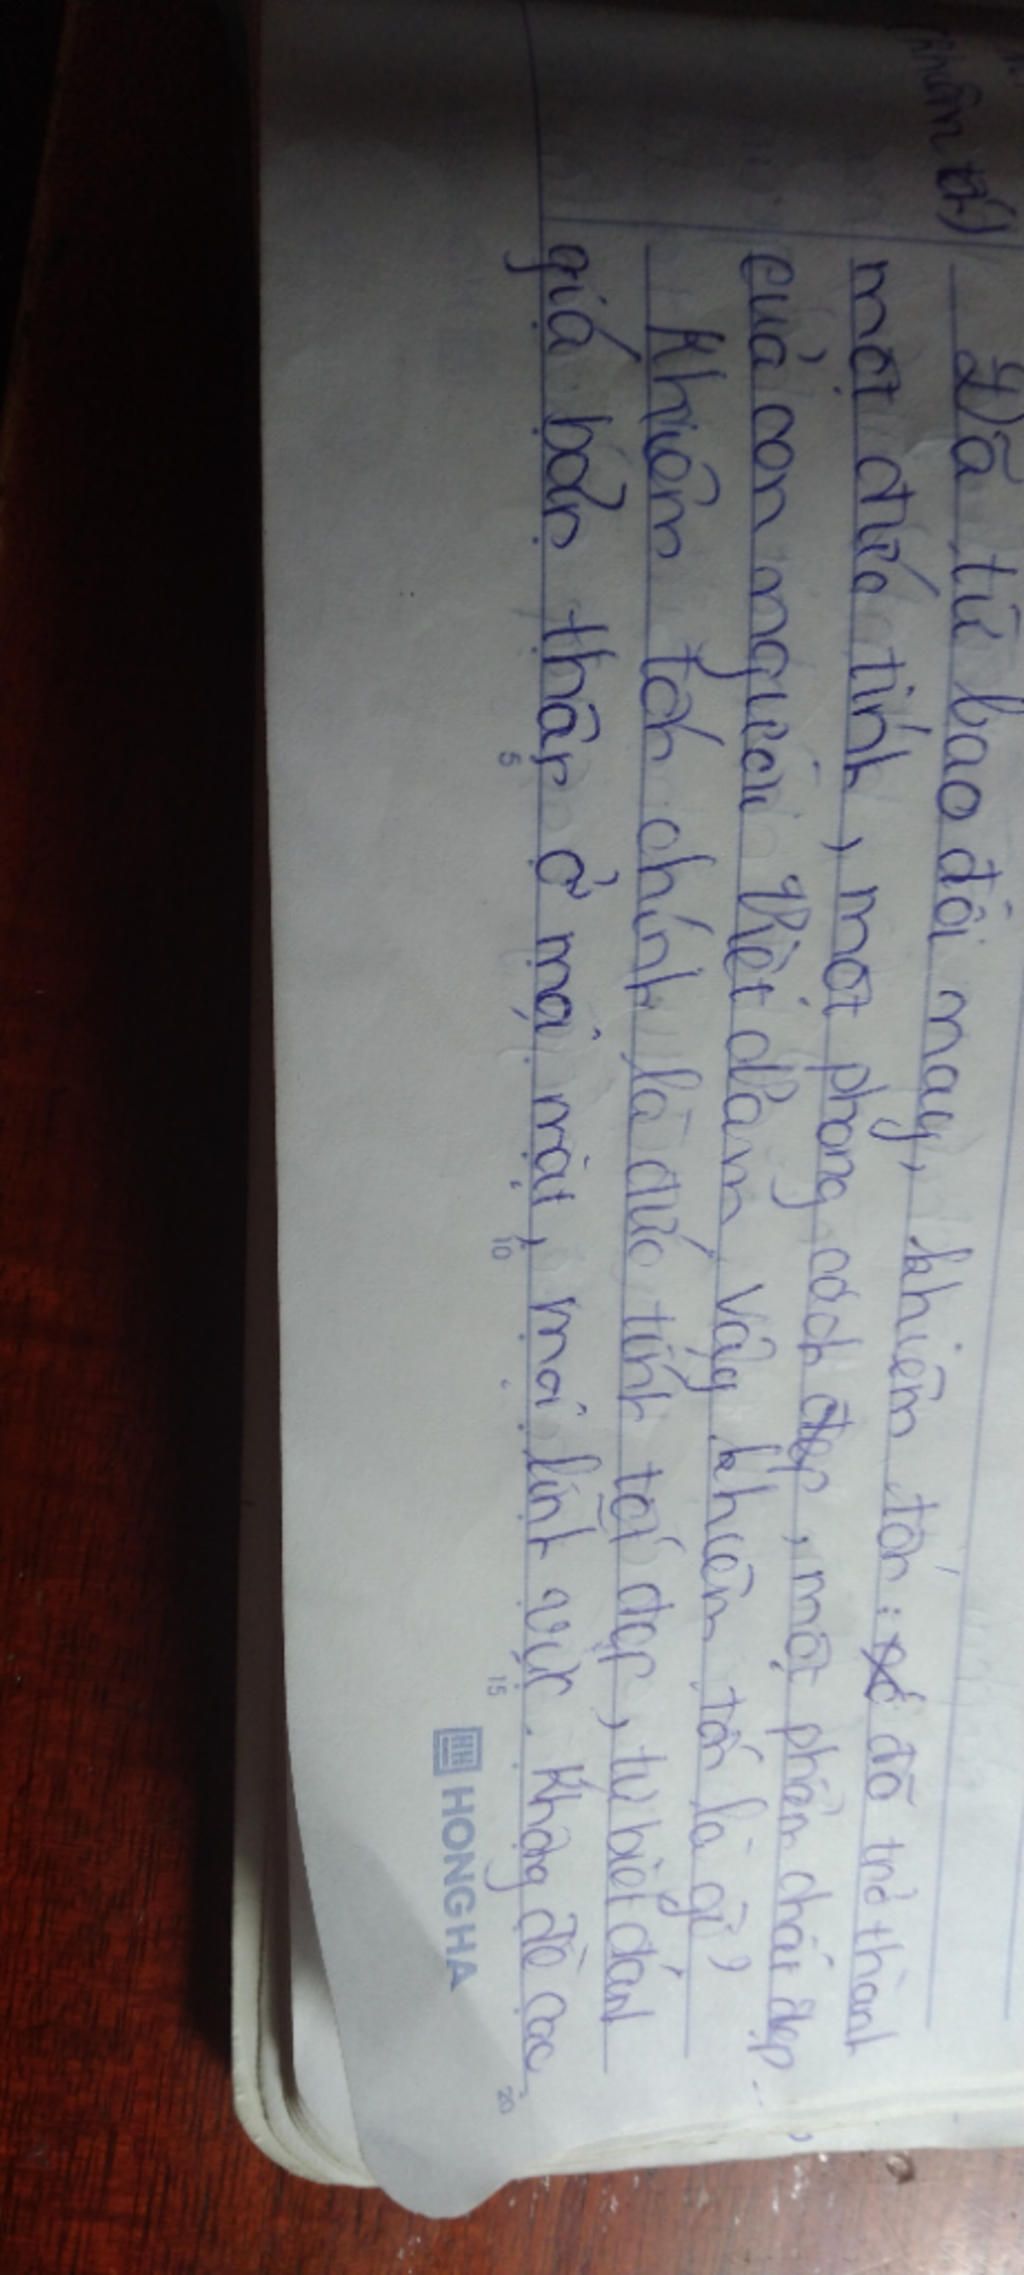 (khiêm tốn)
Đã từ bao đời nay, khiêm tốn: đã trở thành
một đức tính, một phong cách đẹp, một phẩm chất đẹp...
của con người Việt Nam, vậy khiêm tốn là gì?
Khiêm tốn chính là đức tính tốt đẹp, tự biết đánh
giá bản thân ở mọi mặt, mọi lĩnh vực. Không đề cao
5 10 15 20
HONG HA